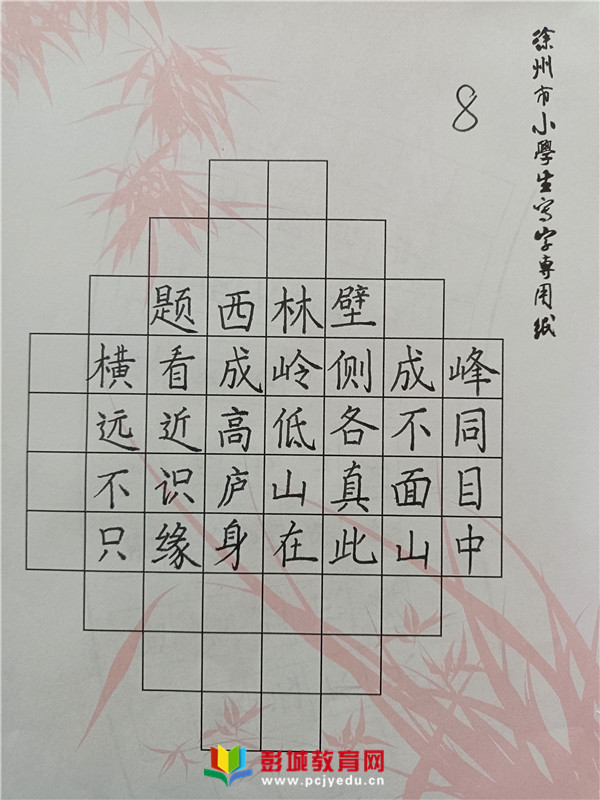 徐州市小學生寫字專用紙
8
题西林壁
横看成岭侧成峰
远近高低各不同
不识庐山真面目
只缘身在此山中
彭城教育网
www.pcjyedu.cn